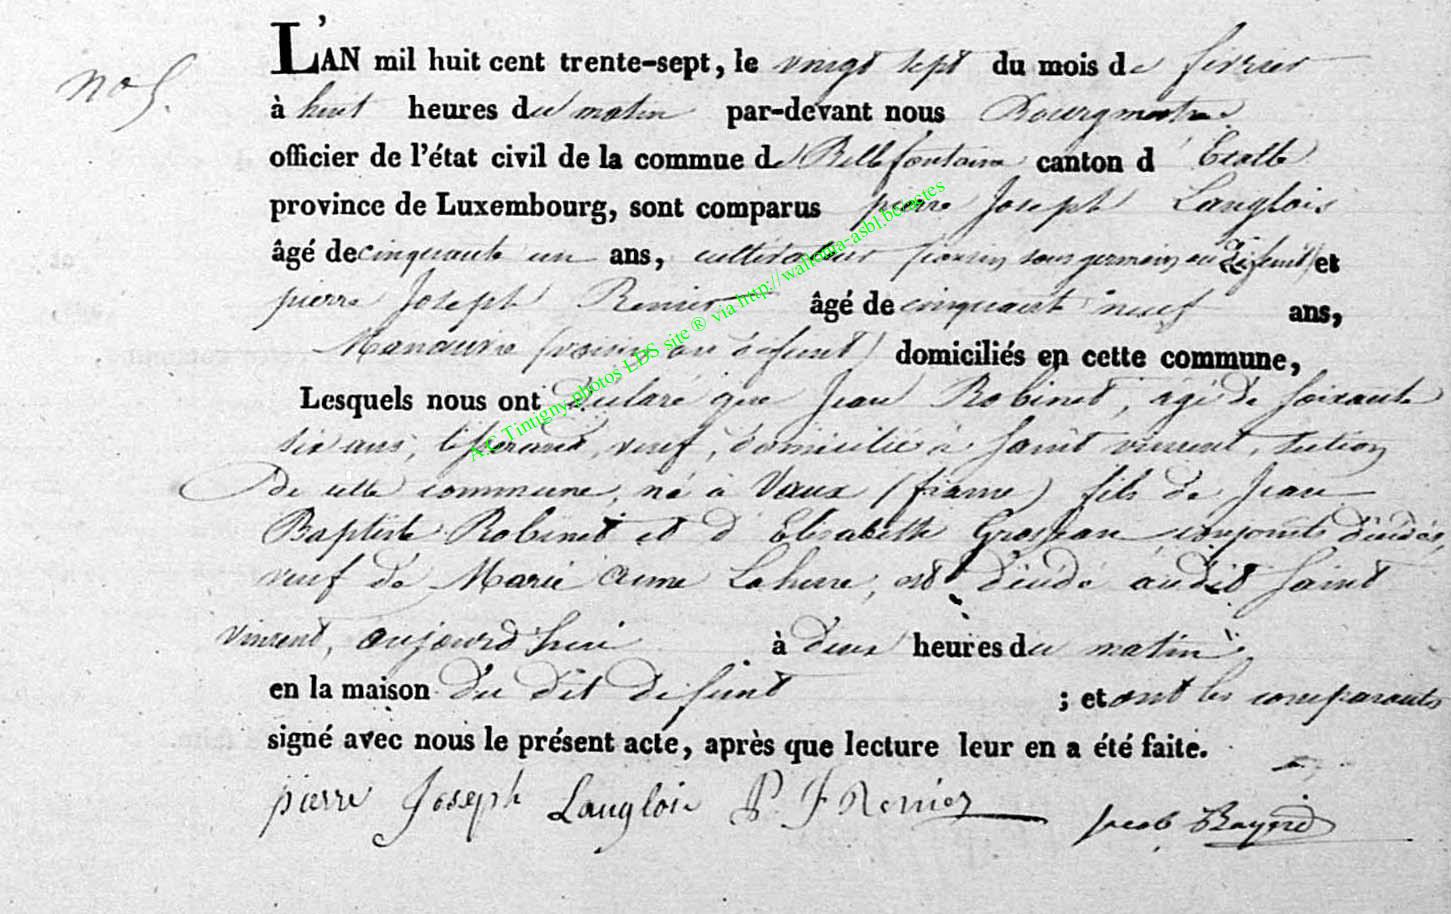 L'AN mil huit cent trente-sept, le vingt sept du mois de fevrier
no 5.
à huit heures du matin par-devant nous Bourgmestre
officier de l'état civil de la commue de Bellefontaine canton d' Etalle
province de Luxembourg, sont comparus pierre Joseph Langlois
âgé de cinquante un ans, cultivateur (cousin sous germain au Défunt) et
pierre Joseph Renier âgé de cinquante neuf ans,
Manœuvre (voisin au défunt) domiciliés en cette commune,
Lesquels nous ont déclaré que Jean Robinet, âgé de soixante
six ans, tisserand, veuf, domicilié à Saint vincent, section
De cette commune, né à Vaux (france) fils de Jean
Baptiste Robinet et d' Elisabeth Grosjean conjoints décédés,
veuf de Marie anne Lahure, est décédé audit Saint
vincent, aujourd'hui à deux heures du matin
en la maison du dit défunt ; et ont les comparants
signé avec nous le présent acte, après que lecture leur en a été faite.
pierre Joseph Langlois P. J Renier Jacob
A.C Tintigny photos LDS site ® via http://wallonia-asbl.be/actes